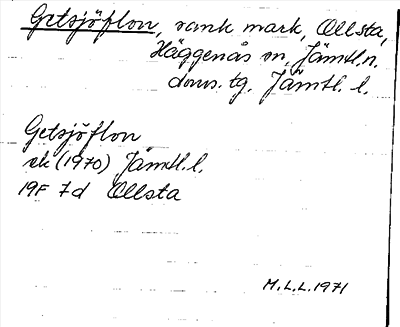 Getsjöflon, sank mark, Ollsta,
Häggenås sn, Jämtl.n.
doms. tg. Jämtl. l.
Getsjöflon
ek (1970) Jämtl. l.
19F 7d Ollsta
M.L.L. 1971